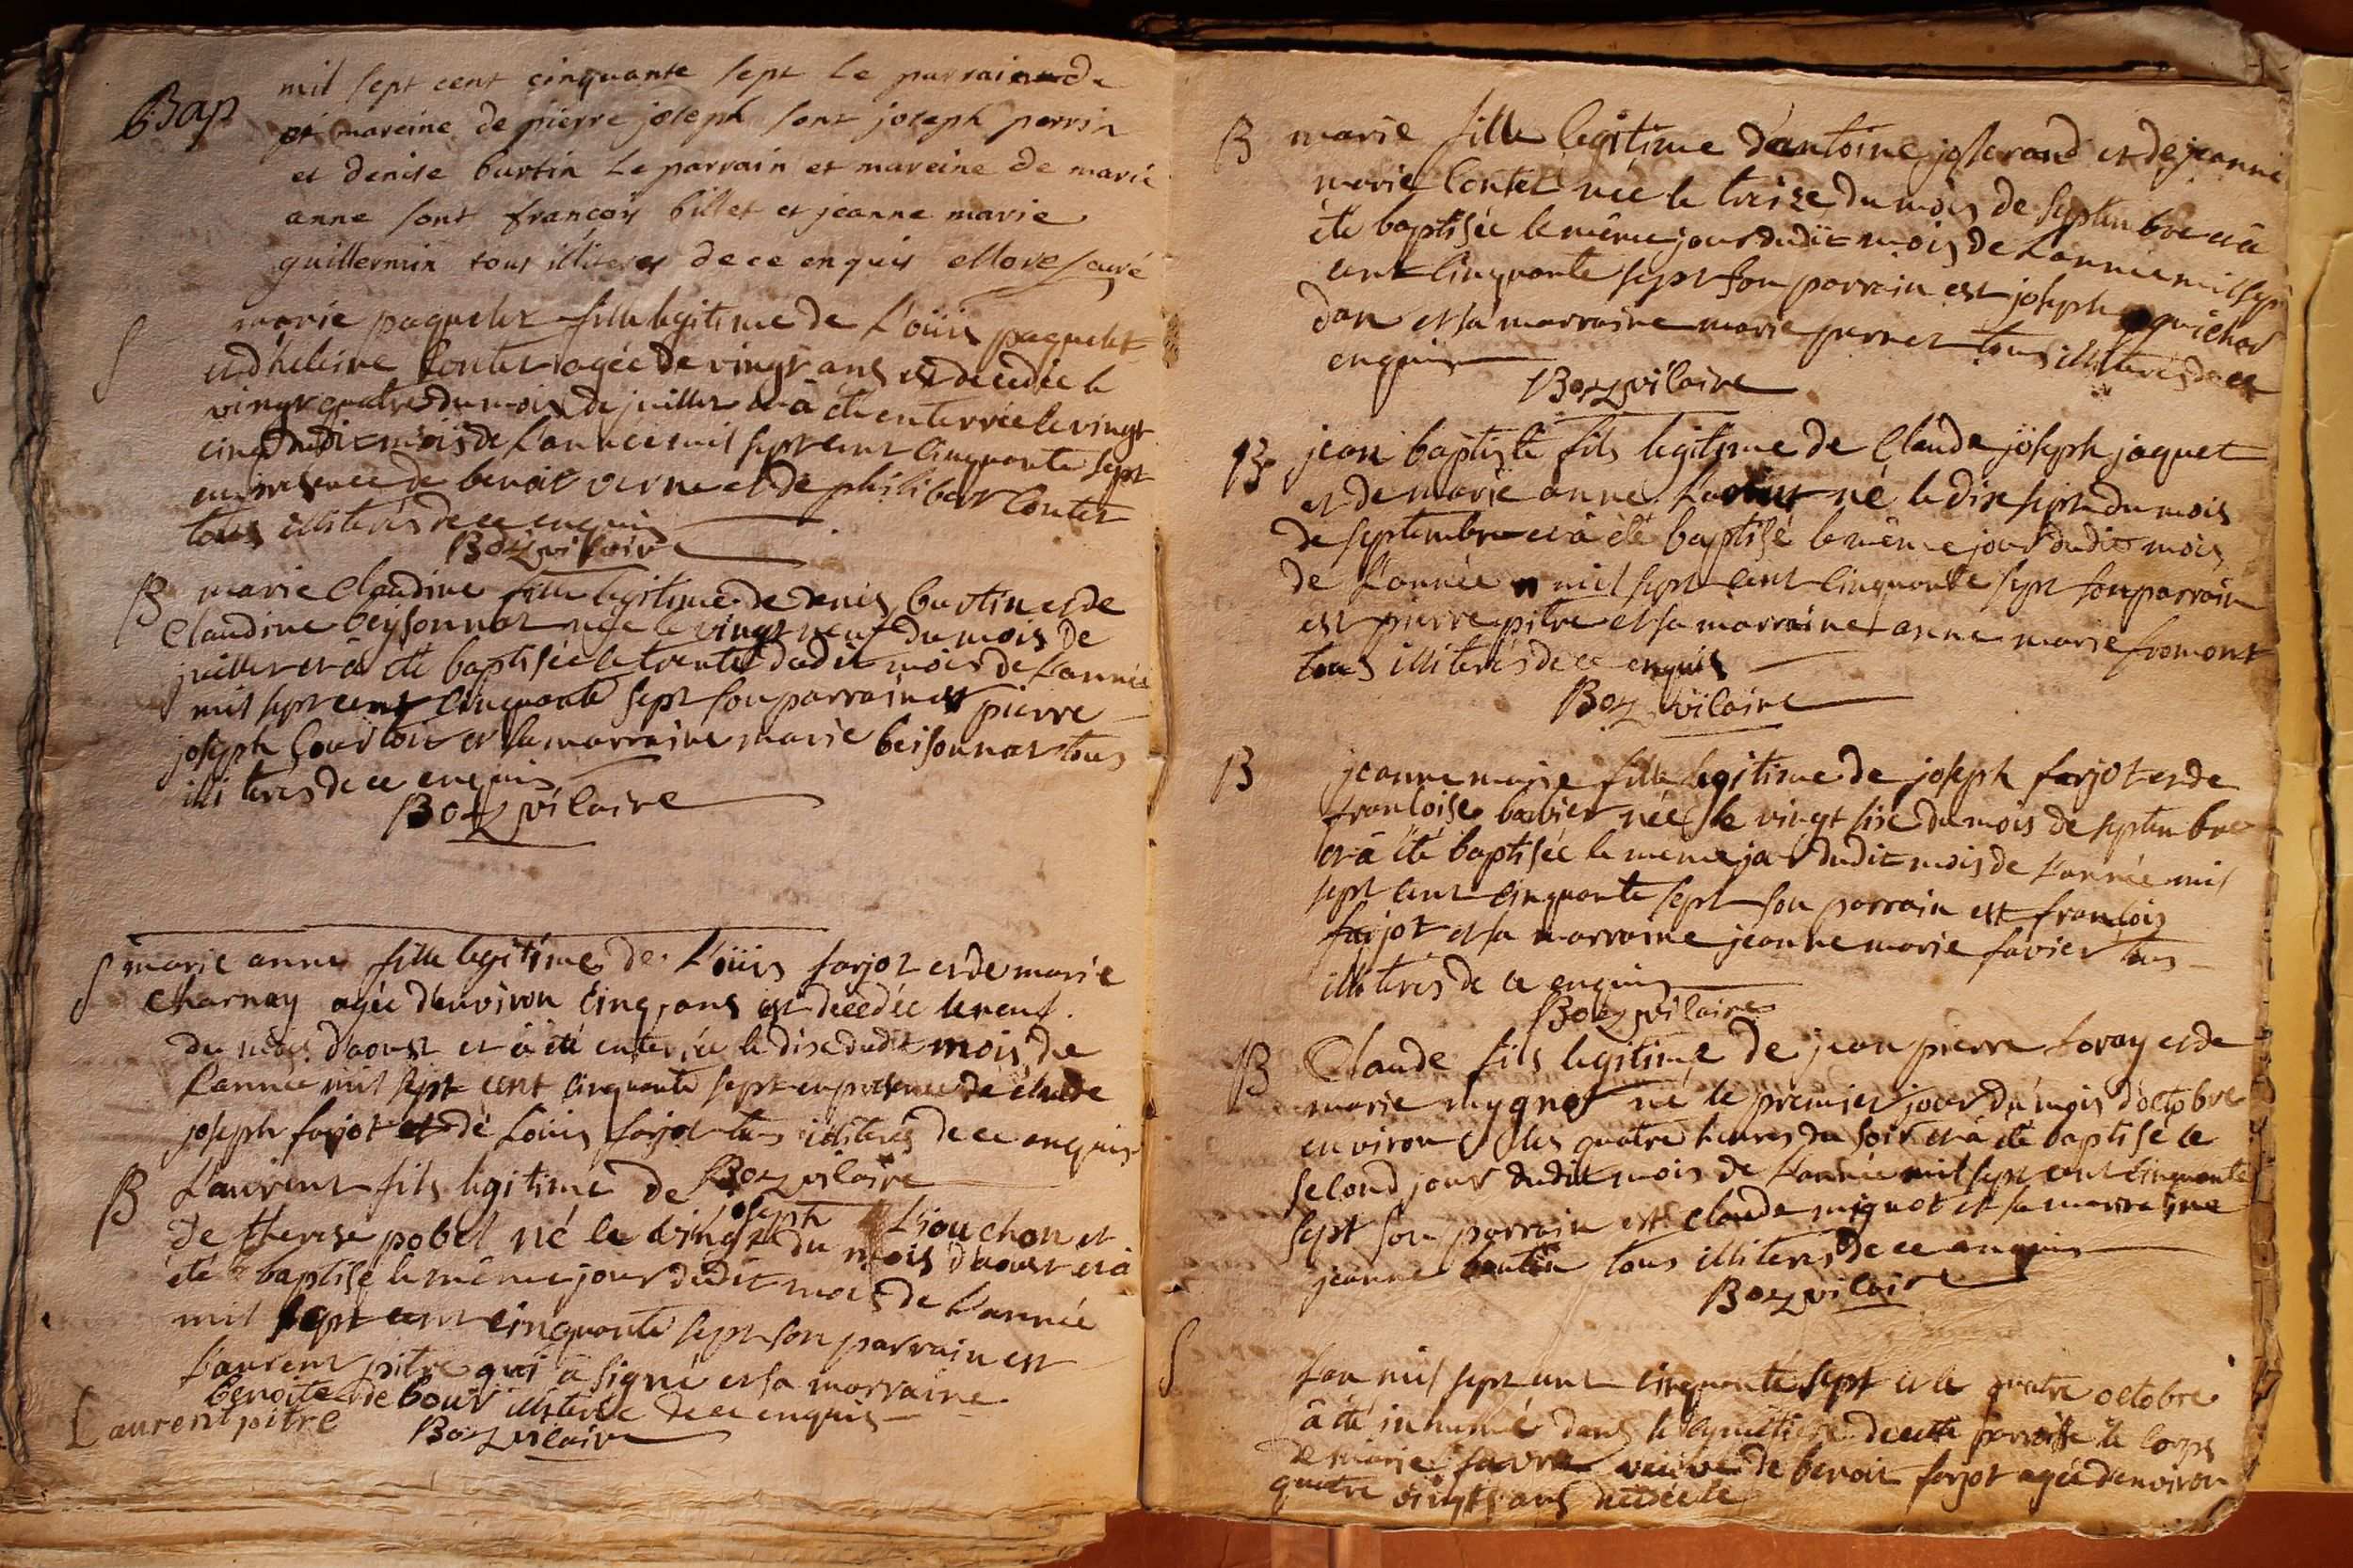 Bap
mil sept cent cinquante sept le parrain
et mareine de pierre joseph sont joseph perrin
et denise burtin Le parrain et mareine de marie
anne sont francoÿ billet et jeanne marie
guillermin tous illiteres de ce enquis More curé
S
marie paquelet fille legitime de Loüis paquelet
et d'heleine Contet agée de vingt ans est decedée le
vingt quatre du mois de juillet et à été enterrée le vingt
cinq dudit mois de L'année mil sept cent cinquante sept
en presence de benoit verne et de philibert Contet
tous illiterés de ce enquis
Boz vicaire
B
marie Claudine fille legitime de denis burtin et de
Claudine beysonnat née le vingt neuf du mois de
juillet et à été baptisée le trente dudit mois de L'année
mil sept cent cinquante sept son parrain est pierre
joseph Courtois et sa marraine marie beisonnat tous
illiterés de ce enquis
Boz vicaire
S
marie anne fille legitime de Loüis farjot et de marie
Charnay agée d'environ Cinq ans est decedée le neuf
du mois d'aoust et à été enterrée le dix dudit mois de
L'année mil sept cent cinquante sept en presence de claude
joseph farjot et de Loüis farjot tous illiterés de ce enquis
Boz vicaire
B
Laurent fils legitime de joseph Liouchon et
de therese pobel né le vingt du mois d'aoust et à
été baptisé le même jour dudit mois de L'année
mil sept cent cinquante sept son parrain est
Laurent pitre qui à signé et sa marraine
benoite de bour illiterée de ce enquis
Laurent pitre
Boz vicaire
B
marie fille legitime d'antoine josserand et de jeanne
marie Contet née le treize du mois de septembre et à
été baptisée le même jour dudit mois de L'année mil sept
cent Cinquante sept son parrain est joseph guichar
dan et sa marraine marie perret tous illiterés de ce
enquis
Boz vicaire
B
jean baptiste fils legitime de Claude joseph jaquet
et de marie anne né le dix sept du mois
de septembre et à été baptisé le même jour dudit mois
de L'année mil sept cent Cinquante sept son parrain
est pierre pitre et sa marraine anne marie fromont
tous illiterés de ce enquis
Boz vicaire
B
jeanne marie fille legitime de joseph farjot et de
francoise bavier née le vingt six du mois de septembre
et à été baptisée le meme jour dudit mois de L'année mil
sept cent cinquante sept son parrain est francois
farjot et sa marraine jeanne marie favier tous
illiterés de ce enquis
Boz vicaire
B
Claude fils legitime de jean pierre Loray et de
marie mygnot né le premier jour du mois d'octobre
environ les quatre heures du soir et à été baptisé le
second jour dudit mois de L'année mil sept cent cinquante
sept son parrain est Claude mignot et sa marraine
jeanne tous illiterés de ce enquis
Boz vicaire
S
L'an mil sept cent cinquante sept et le quatre octobre
à été inhumé dans le cymetiere de cette parroisse le corps
de marie favre veuve de benoit farjot agée d'environ
quatre vingts ans decedée